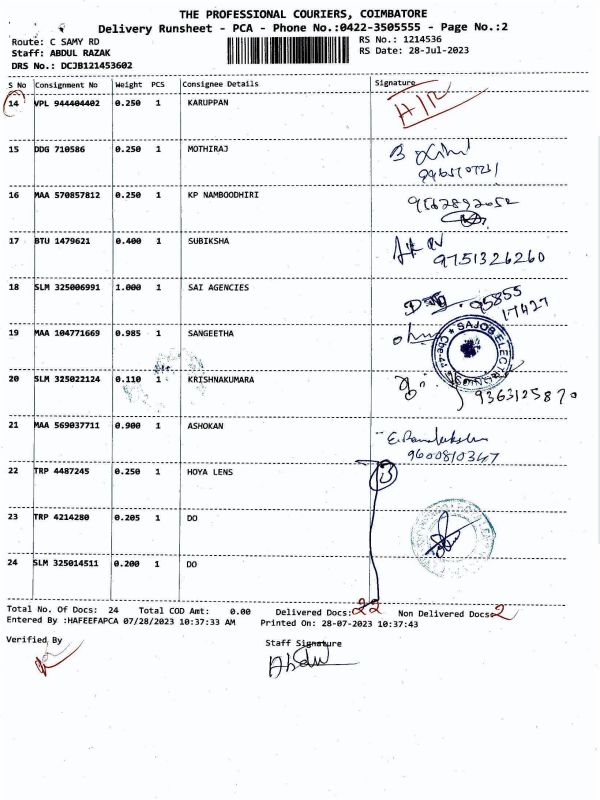 THE PROFESSIONAL COURIERS, COIMBATORE
Delivery Runsheet - PCA - Phone No.:0422-3505555 - Page No.:2
Route: C SAMY RD
RS No.: 1214536
Staff: ABDUL RAZAK
RS Date: 28-Jul-2023
DRS No.: DCJB121453602
S No Consignment No Weight PCS Consignee Details Signature
14 VPL 944404402 0.250 1 KARUPPAN
15 DDG 710586 0.250 1 MOTHIRAJ
16 MAA 570857812 0.250 1 KP NAMBOODHIRI
17 BTU 1479621 0.400 1 SUBIKSHA
9751326260
18 SLM 325006991 1.000 1 SAI AGENCIES
95855
17427
19 MAA 104771669 0.985 1 SANGEETHA
SAJOB ELECTRONICS
20 SLM 325022124 0.110 1 KRISHNAKUMARA
9363125870
21 MAA 569037711 0.900 1 ASHOKAN
9600810347
22 TRP 4487245 0.250 1 HOYA LENS
3
23 TRP 4214280 0.205 1 DO
24 SLM 325014511 0.200 1 DO
Total No. Of Docs: 24 Total COD Amt: 0.00 Delivered Docs: 22 Non Delivered Docs: 2
Entered By :HAFEEFAPCA 07/28/2023 10:37:33 AM Printed On: 28-07-2023 10:37:43
Verified By
Staff Signature